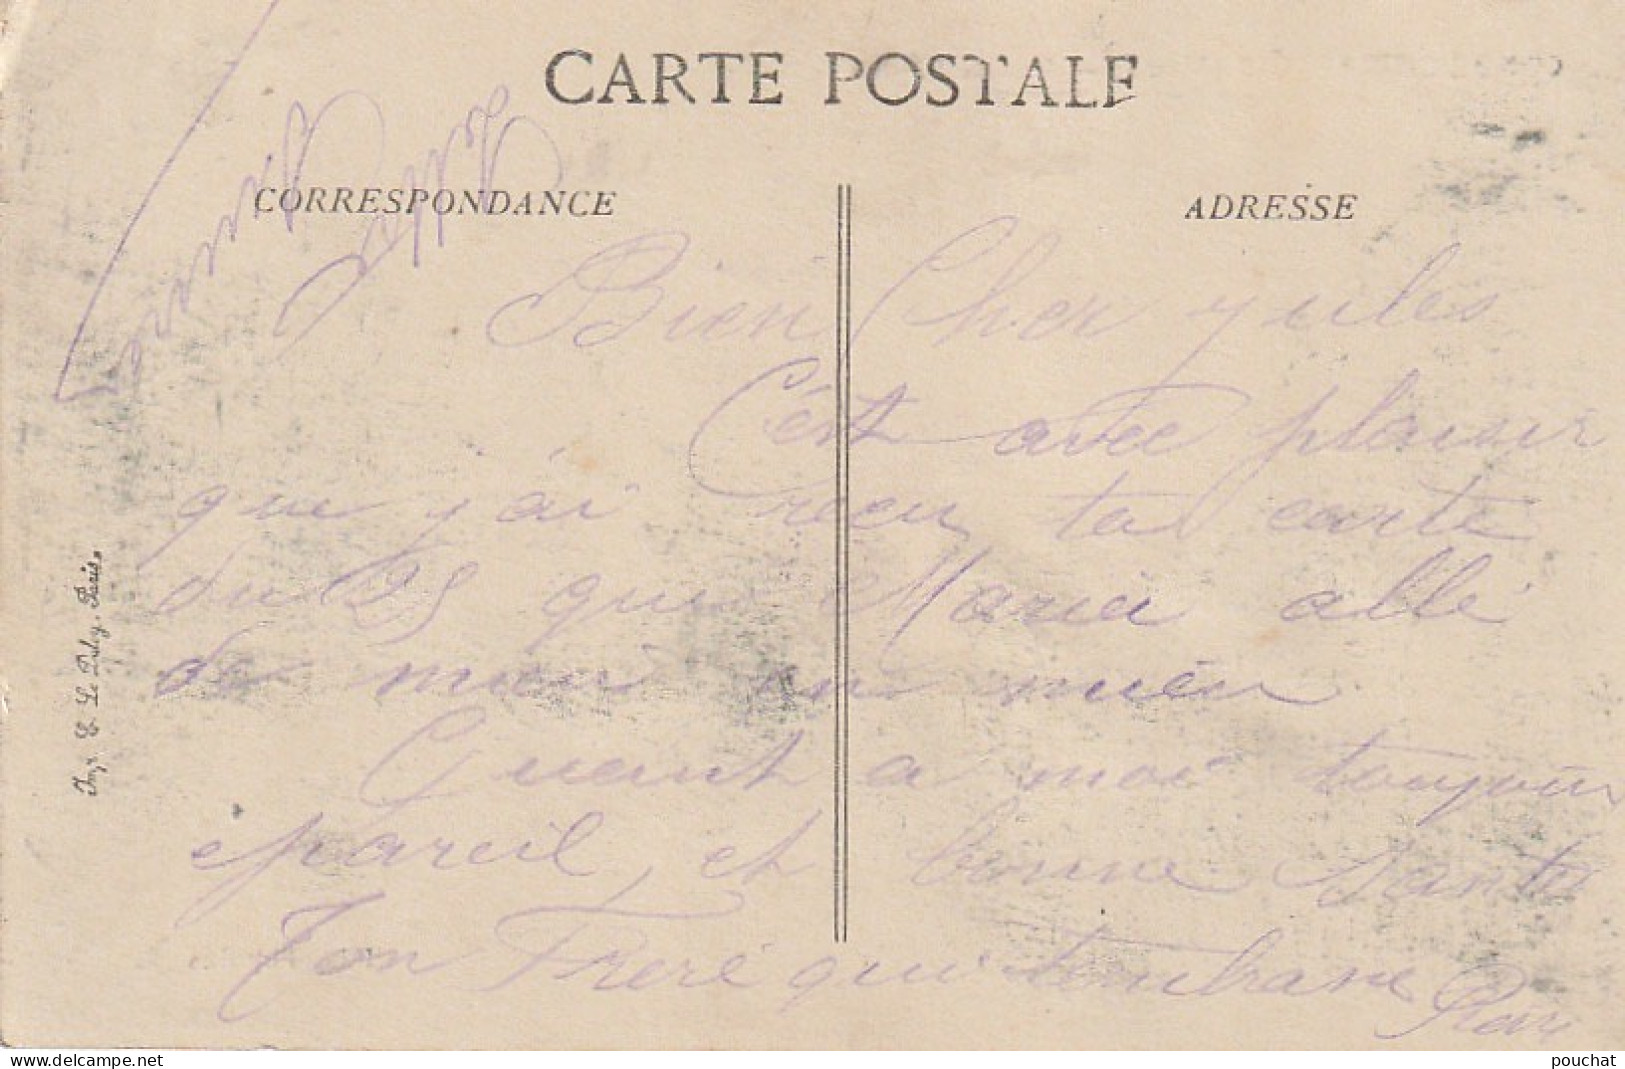 CARTE POSTALE
CORRESPONDANCE
ADRESSE
Bien Cher Jules
C'est avec plaisir
que j'ai recu ta carte
du 25 que Maria allé
de mieu en mieu
Quant a moi toujours
pareil, et bonne Santé
Ton Frere qui t'embrasse
Imp. E. Le Deley, Paris.
pouchat